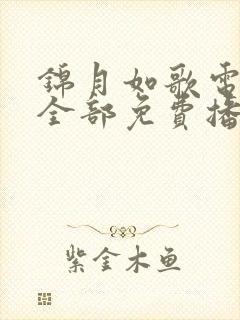 錦月如歌電
全部免費播
紫金木鱼